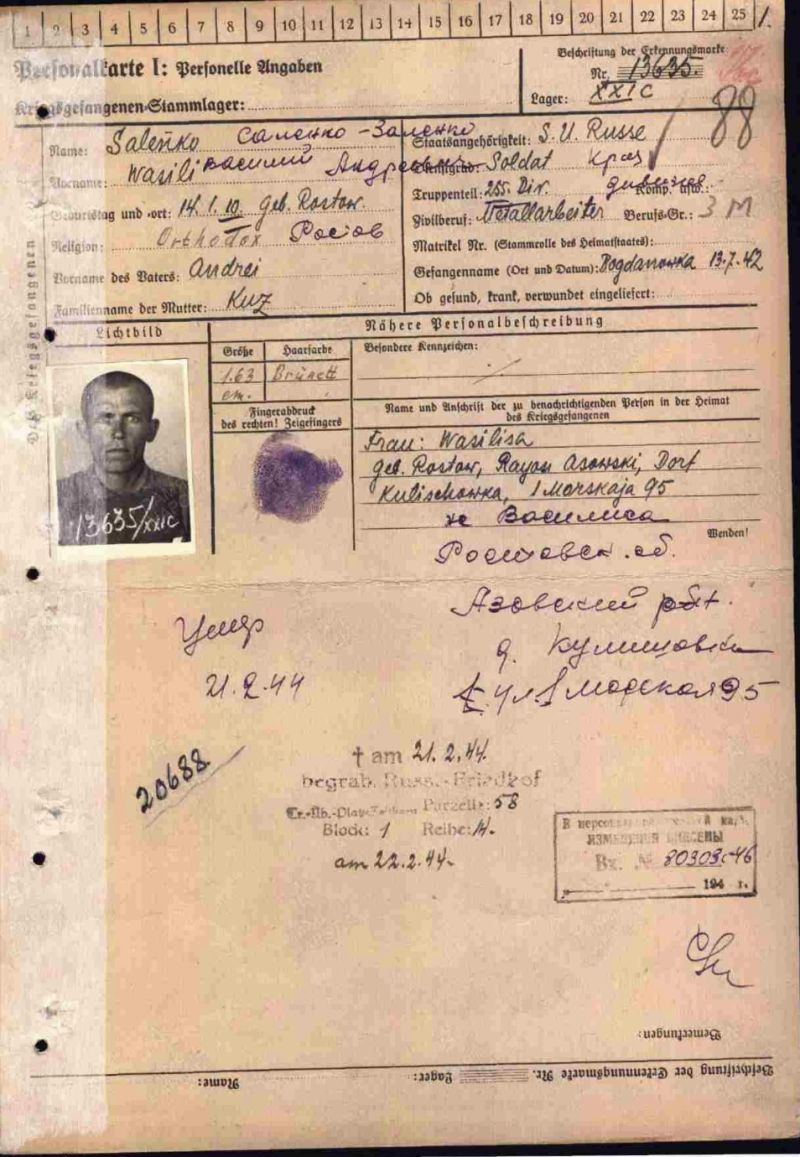 1 2 3 4 5 6 7 8 9 10 11 12 13 14 15 16 17 18 19 20 21 22 23 24 25 1.
Personalkarte I: Personelle Angaben
Beschriftung der Erkennungsmarke
Nr. 13635.
Kriegsgefangenen-Stammlager:
Lager: XXIC
88
Name: Saleńko Саленко-Заленко
Staatsangehörigkeit: S. U. Russe
Vorname: Wasili Василий
Dienstgrad: Soldat Крас
Truppenteil: 255. Div. Komp. usw.:
Geburtstag und -ort: 14.1.10. geb. Rostow.
Zivilberuf: Metallarbeiter Berufs-Gr.: 3 M
Religion: Orthodox Ростов
Matrikel Nr. (Stammrolle des Heimatstaates):
Vorname des Vaters: Andrei
Gefangenname (Ort und Datum): Bogdanowka 13.7.42
Familienname der Mutter: Kuz
Ob gesund, krank, verwundet eingeliefert:
Des Kriegsgefangenen
Lichtbild
Nähere Personalbeschreibung
Größe Haarfarbe Besondere Kennzeichen:
1.63 cm. Brünett
Fingerabdruck
des rechten! Zeigefingers
Name und Anschrift der zu benachrichtigenden Person in der Heimat
des Kriegsgefangenen
13635/XXIC
Frau: Wasilisa
geb. Rostow, Rayon Asowski, Dorf
Kulischowka, 1 Morskaja 95
Василиса
Wenden!
Ростовск. об.
Умер
21.2.44
Азовский
д. Кулишовка
ул. 1 Морская 95
20688.
† am 21.2.44.
begrab. Russ.-Friedhof
Parzelle: 58
Block: 1 Reihe: 14.
am 22.2.44.
ИЗМЕНЕНИЯ ВНЕСЕНЫ
Вх. № 80303с-46
194 г.
Bemerkungen:
Beschriftung der Erkennungsmarke Nr. Lager: Name: